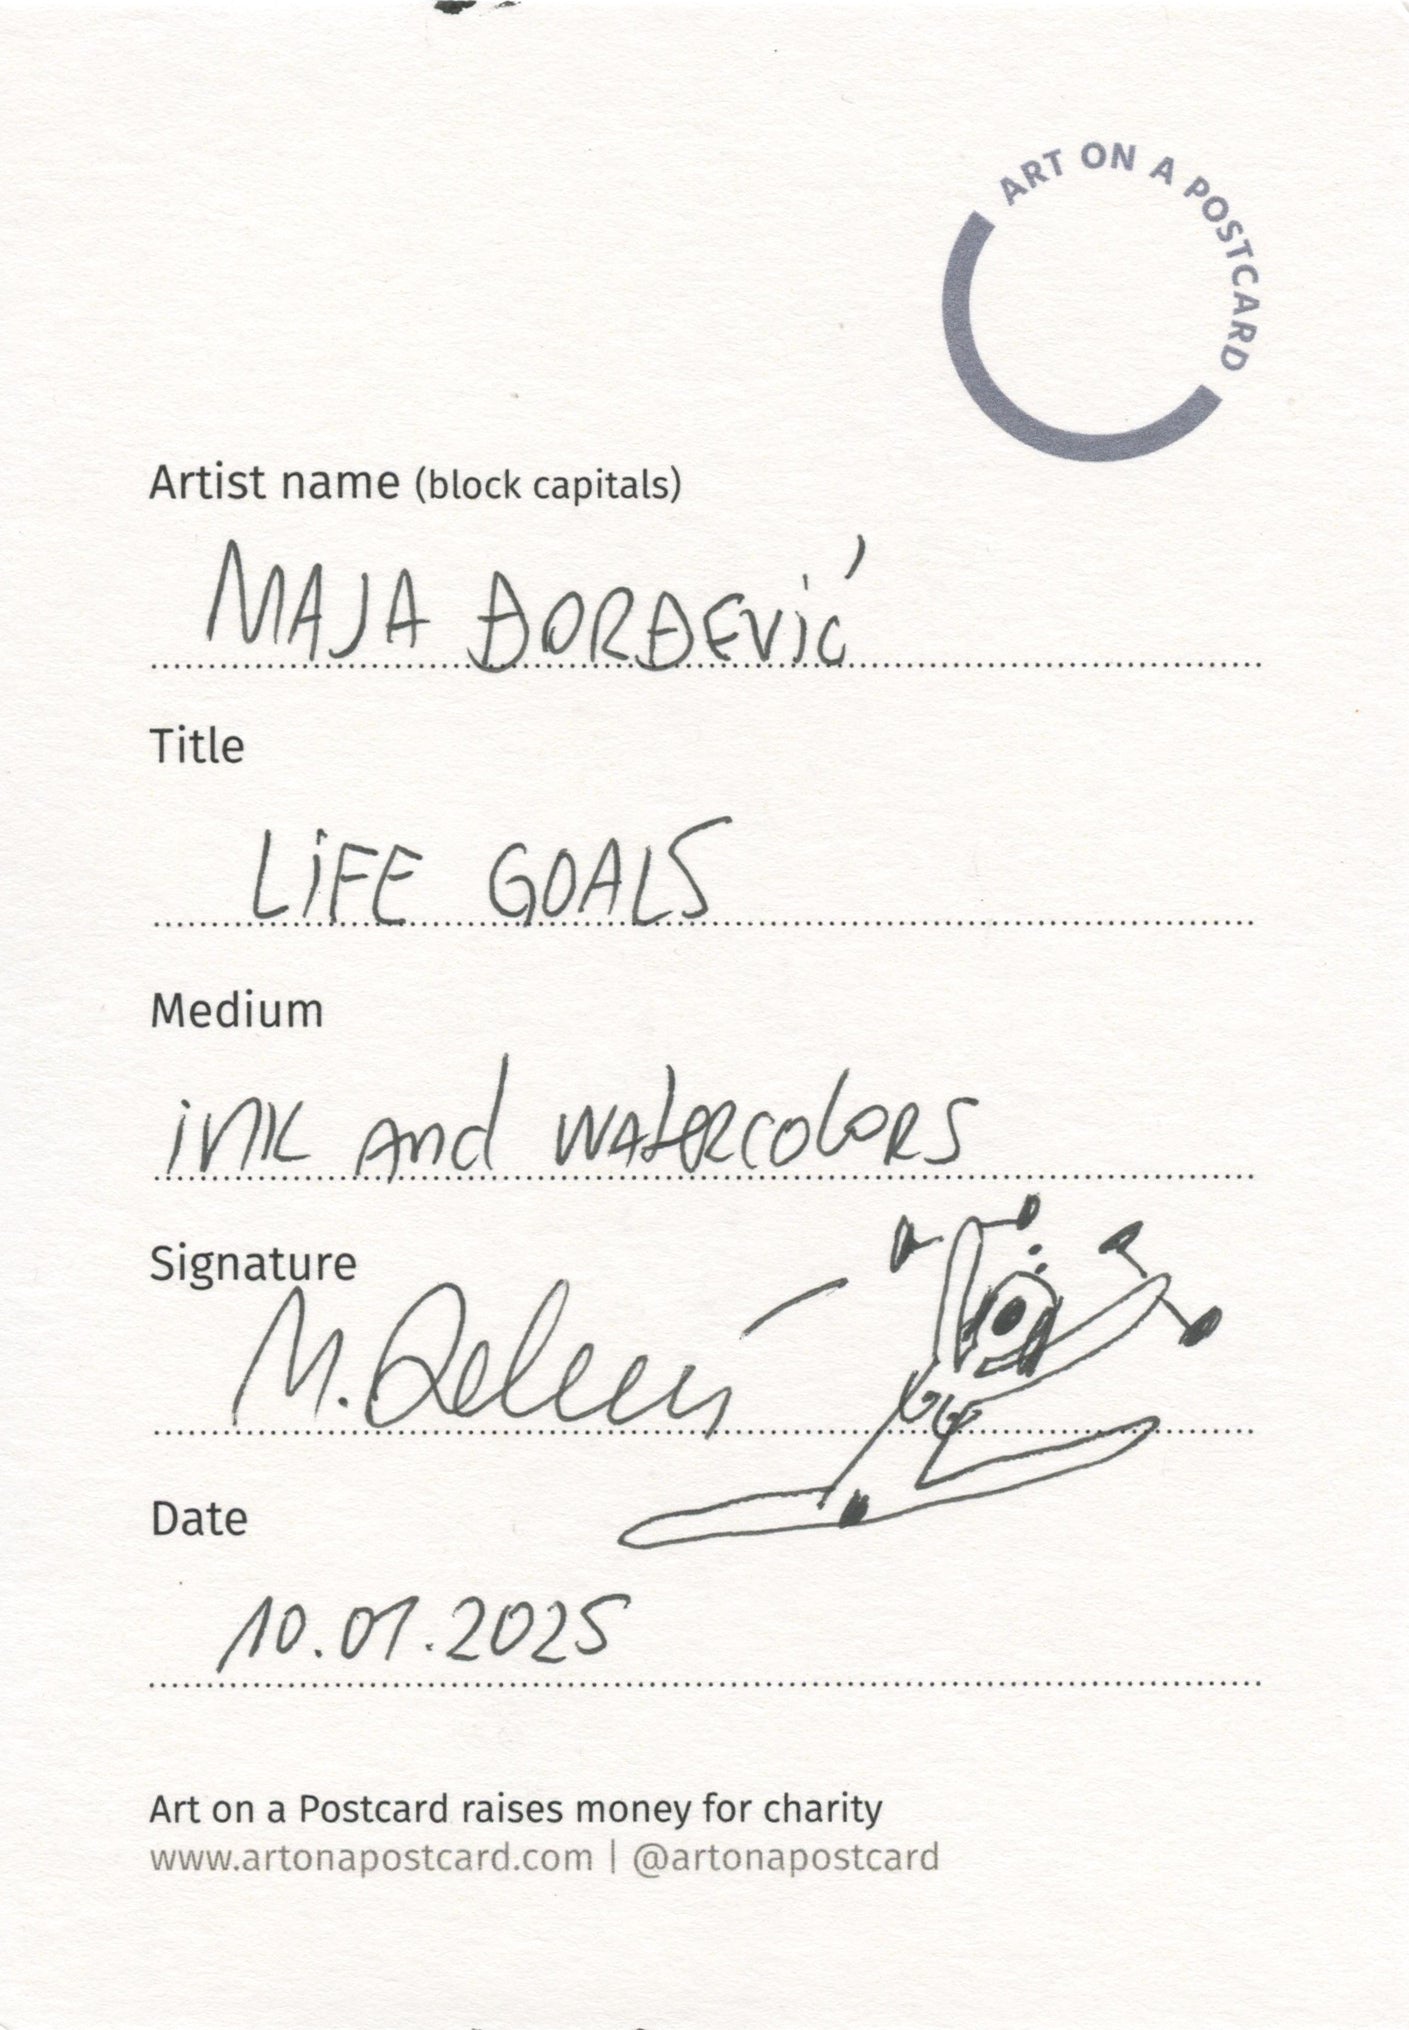 ART ON A POSTCARD
Artist name (block capitals)
MAJA ĐORĐEVIĆ
Title
LIFE GOALS
Medium
ink and watercolors
Signature
Date
10.01.2025
Art on a Postcard raises money for charity
www.artonapostcard.com | @artonapostcard